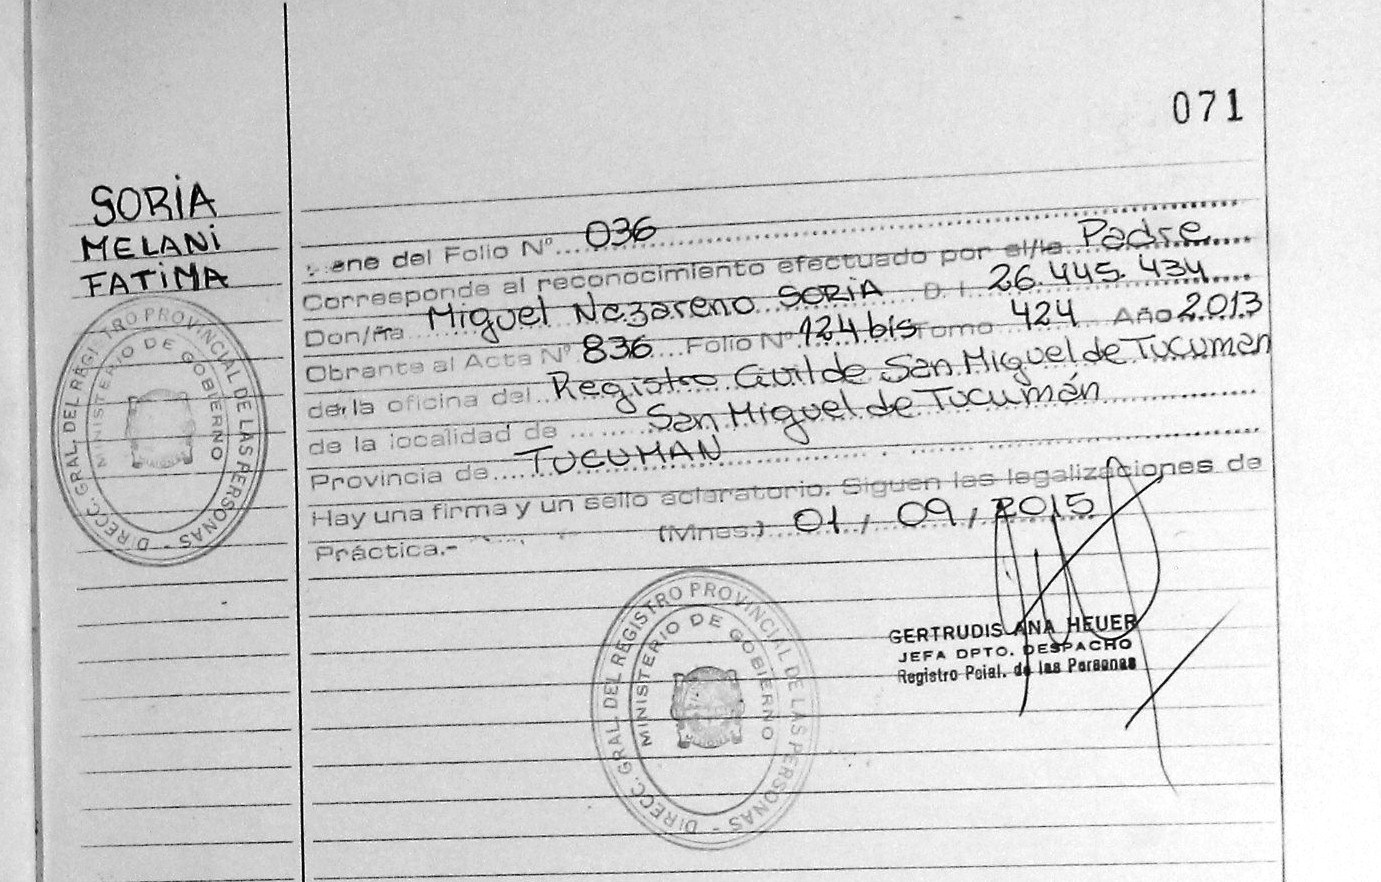 071
SORIA
MELANI
FATIMA
ene del Folio Nº 036
Corresponde al reconocimiento efectuado por el/la Padre
Don/ña Miguel Nazareno SORIA D. I. 26.445.434
Obrante al Acta Nº 836 Folio Nº 124 bis Tomo 424 Año 2.013
de la oficina del Registro Civil de San Miguel de Tucuman
de la localidad de San Miguel de Tucumán
Provincia de TUCUMAN
Hay una firma y un sello aclaratorio. Siguen las legalizaciones de
Práctica.- (Mnes.) 01, 09, 2015
DIRECC. GRAL. DEL REGISTRO PROVINCIAL DE LAS PERSONAS -
MINISTERIO DE GOBIERNO
DIRECC. GRAL. DEL REGISTRO PROVINCIAL DE LAS PERSONAS -
MINISTERIO DE GOBIERNO
GERTRUDIS ANA HEUER
JEFA DPTO. DESPACHO
Registro Pcial. de las Personas